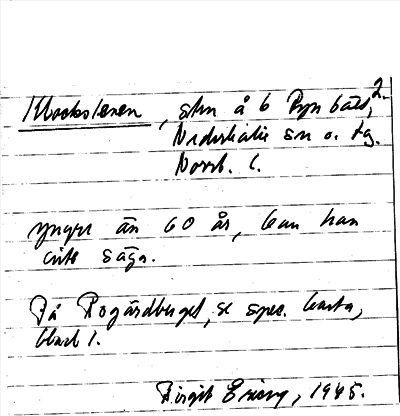 Klockstenen, sten å b Ryn båts, 2.
Nederkalix sn o. tg.
Norrb. l.
yngre än 60 år, kan han
inte säga.
På Rogårdberget, se spec. karta,
blad 1.
Birgit Ericy, 1945.